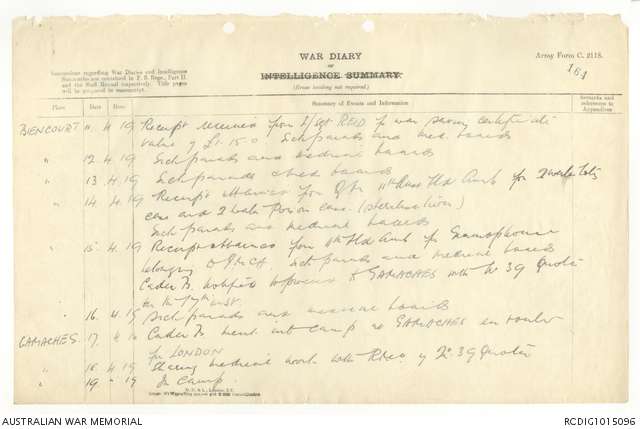 WAR DIARY
OF
INTELLIGENCE SUMMARY.
(Erase heading not required.)
Army Form C. 2118.
161
Instructions regarding War Diaries and Intelligence
Summaries are contained in F. S. Regs., Part II.
and the Staff Manual respectively. Title pages
will be prepared in manuscript.
Place Date Summary of Events and Information Remarks and references to Appendices
BIENCOURT 11 4 19 Receipt received from S/Sgt REID for war saving certificate
value of £1.15.0 Sick parade and med. boards
" 12 4 19 Sick parade and medical boards
" 13 4 19 Sick parade & med. boards
" 14 4 19 Receipt obtained from 11th Aust Fld Amb for
case and 2 Poison case
Sick parade and medical boards
" 15 4 19 Receipt obtained from Fld Amb for Gramophone
belonging to YMCA. Sick parade and medical boards
Cadre notified to proceed to GAMACHES with No 39 Quota
on the 17th inst.
" 16 4 19 Sick parade and medical boards
GAMACHES 17 4 19 Cadre went into camp at GAMACHES en route
for LONDON
" 18 4 19 Sharing medical work with RMO of No 39 Quota
" 19 " 19 In Camp.
AUSTRALIAN WAR MEMORIAL
RCDIG1015096